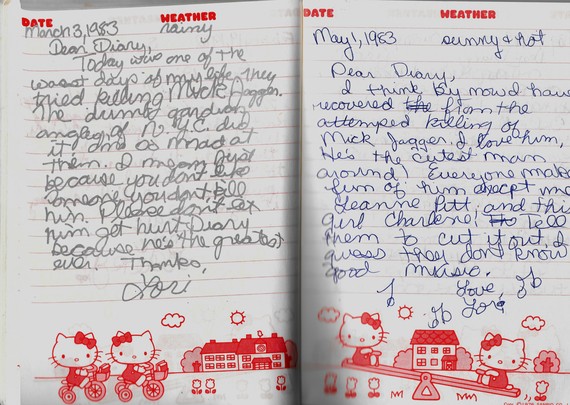 DATE WEATHER
March 3, 1983 rainy
Dear Diary,
Today was one of the
worst days of my life, they
tried killing Mick Jagger.
The dumb gardian
angles of N.Y.C. did
it Im so mad at
them. I mean just
because you dont like
someone you dont kill
him. Please dont let
him get hurt Diary
because he's the greatest
ever. Thanks,
Lori
DATE WEATHER
May 1, 1983 sunny & hot
Dear Diary,
I think by now I have
recovered the from the
attemped killing of
Mick Jagger. I love him,
He's the cutest man
around! Everyone makes
fun of him except me
Jeanne Pitt, and this
girl Charlene. Tell
them to cut it out, I
guess they dont know
good music.
Love,
Lori